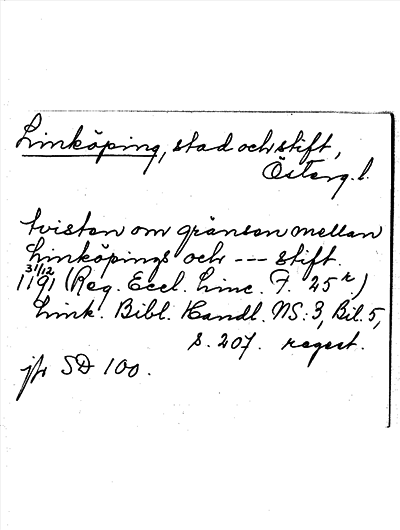 Linköping, stad och stift,
Österg. l.
tvisten om gränsen mellan
Linköpings och --- stift.
31/12
1191 (Reg. Eccl. Linc. F. 25 r)
Link. Bibl. Handl. NS: 3, Bil. 5,
s. 207. regest.
jfr SD 100.